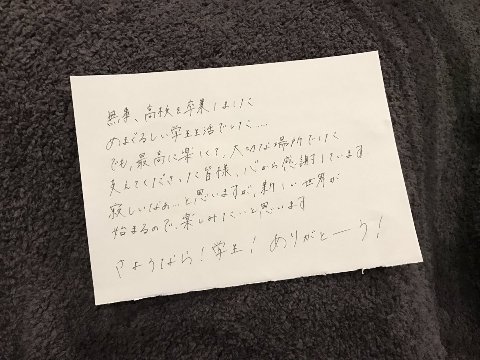 無事、高校を卒業しました
めまぐるしい学生生活でした...
でも、最高に楽しくて、大切な場所でした
支えてくださった皆様、心から感謝しています
寂しいなぁ…と思いますが、新しい世界が
始まるので、楽しみたいと思います
さようなら!学生!ありがとーう!